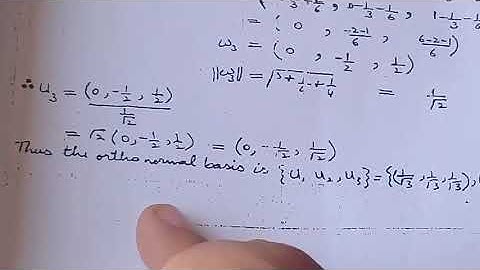 = (0, -2-1/6, 6-2-1/6)
w₃ = (0, -1/2, 1/2)
||w₃|| = √ + 1/4 + 1/4 = 1/√2
∴ u₃ = (0, -1/2, 1/2) / 1/√2
= √2 (0, -1/2, 1/2) = (0, -1/√2, 1/√2)
Thus the orthonormal basis is {u, u₂, u₃} = {(1/√3, 1/√3, 1/√3),